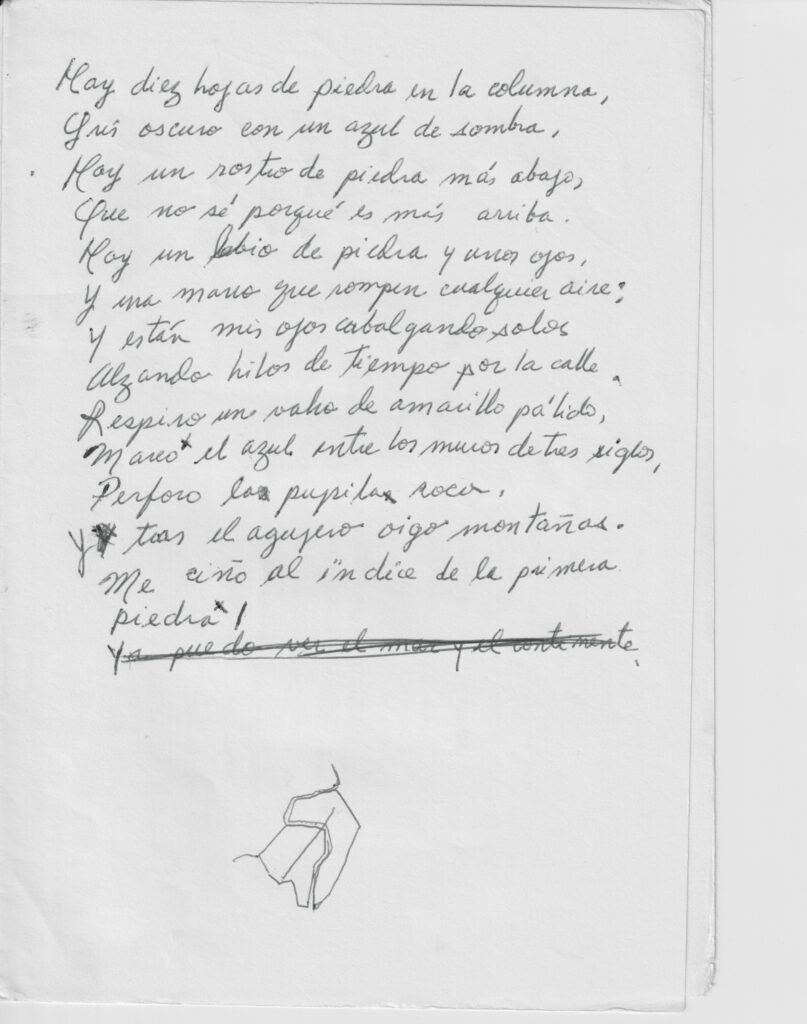 Hay diez hojas de piedra en la columna,
Gris oscuro con un azul de sombra,
Hay un rostro de piedra más abajo,
Que no sé porqué es más arriba.
Hay un labio de piedra y unos ojos,
Y una mano que rompen cualquier aire;
Y están mis ojos cabalgando solos
Alzando hilos de tiempo por la calle.
Respiro un vaho de amarillo pálido,
Marco el azul entre los muros de tres siglos,
Perforo la pupila roca,
Y tras el agujero oigo montañas.
Me ciño al índice de la primera
piedra!
Ya puedo ver el mar y el continente.